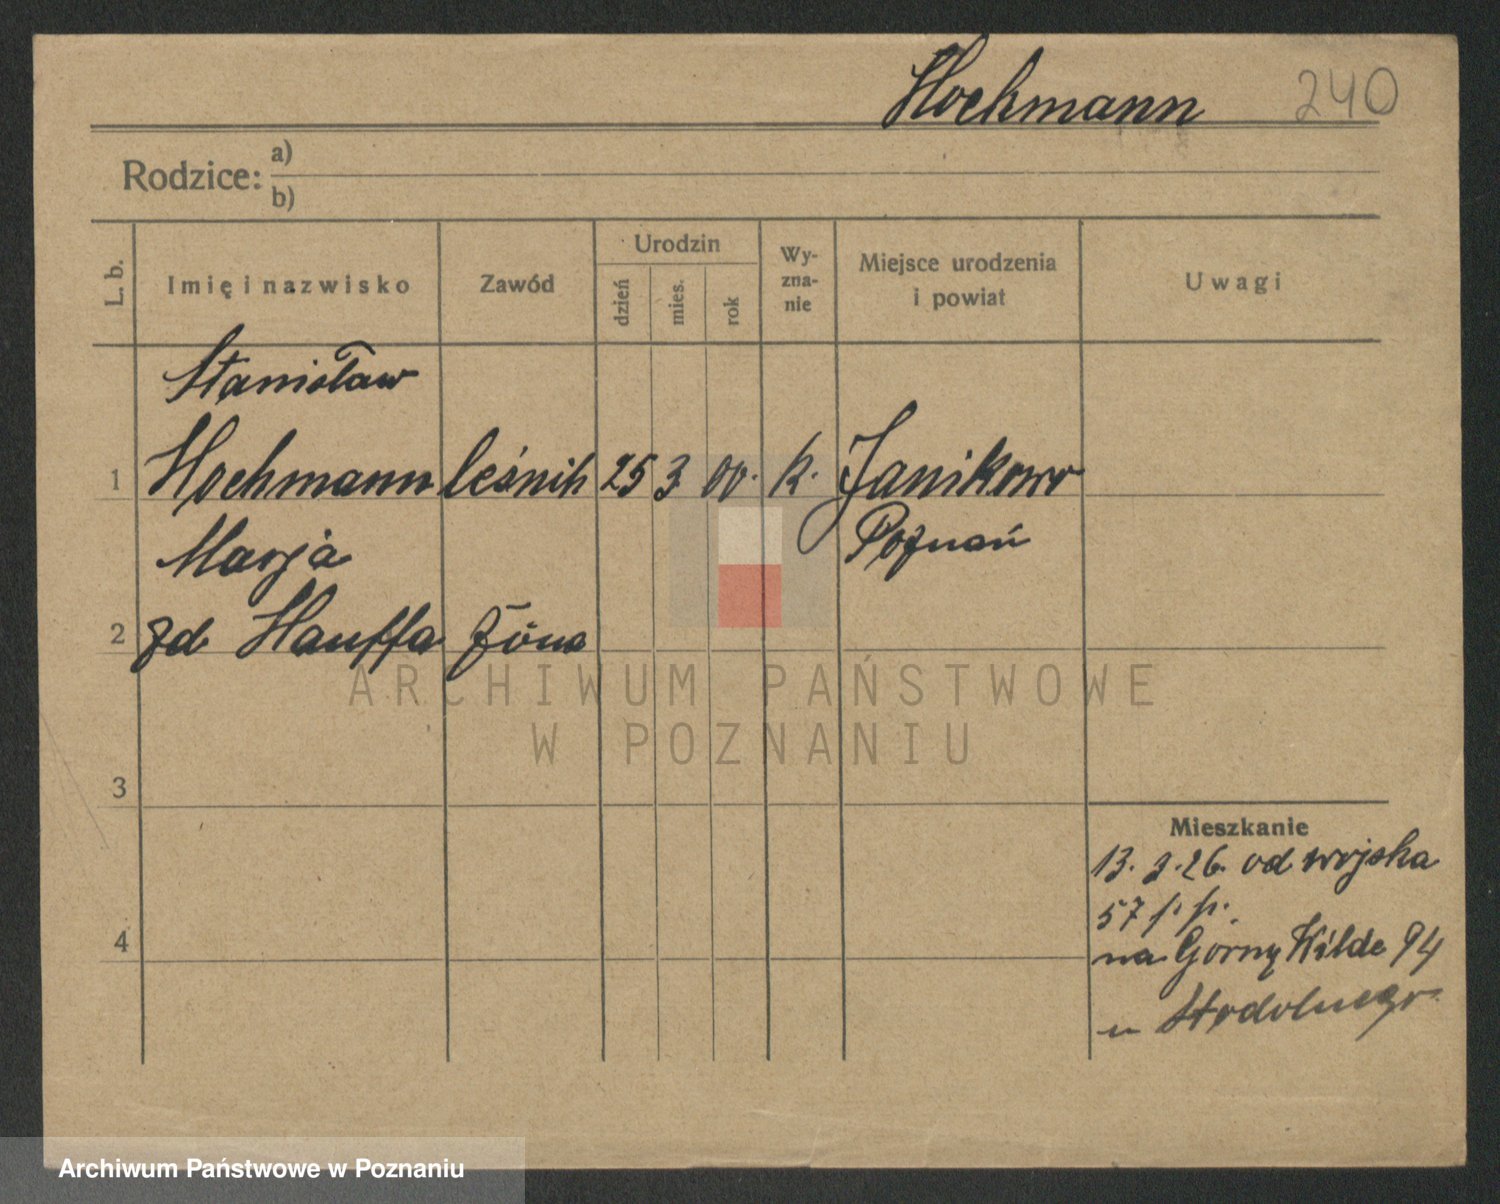 Hochmann 240
Rodzice: a)
b)
L. b. Imię i nazwisko Zawód Urodzin dzień mies. rok Wy-zna-nie Miejsce urodzenia i powiat Uwagi
Stanisław
1 Hochmann leśnik 25 3 00. k. Janikowo
Marja Poznań
2 zd Hauffa żona
ARCHIWUM PAŃSTWOWE
W POZNANIU
3
Mieszkanie
13. 3. 26. od wojska
57 p. p.
4 na Górny Wilde 94
u Stodolnego
Archiwum Państwowe w Poznaniu